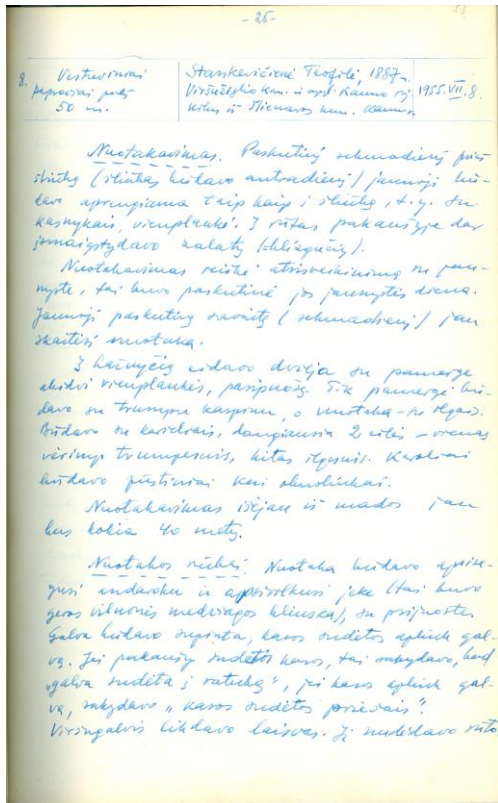 - 25 -
53
8. Vestuviniai papročiai prieš 50 m.
Stankevičienė Teofilė, 1887 m.
kilus iš Slienavos km. Kauno
1955. VII. 8.
Nuotakavimas. Paskutinį sekmadienį prieš
šliūbą (šliūbas būdavo antradienį) jaunoji bū-
davo aprengiama taip kaip į šliūbą, t. y. su
kasnykais, vienplaukė. Į rūtas pakaušyje dar
įsmaigstydavo zalatų (blizgučių).
Nuotakavimas reiškė atsisveikinimą su jau-
nyste, tai buvo paskutinė jos jaunystės diena.
Jaunoji paskutinį savaitę (sekmadienį) jau
skaitėsi nuotaka.
Į bažnyčią eidavo dvieja su pamerge
abidvi vienplaukės, pasipuošę. Tik pamergė bū-
davo su trumpu kaspinu, o nuotaka - su ilgais.
Būdavo su karieliais, daugiausia 2 eilės - vienas
vėrimas trumpesnis, kitas ilgesnis. Karoliai
būdavo pūstiniai
Nuotakavimas išėjau iš mados jau
bus kokia 40 metų.
Nuotakos rūbai. Nuotaka būdavo apsise-
gusi andaroku ir apsivilkusi jeke (tai buvo
geros vilnonės medžiagos bliuska), su prijuoste.
Galva būdavo supinta, kasos sudėtos aplink gal-
vą. Jei pakaušy sudėtos kasos, tai sakydavo, kad
„galva sudėta į ratuką", jei kasos aplink gal-
vą, sakydavo „kasos sudėtos priešais".
Viršugalvis likdavo laisvas. Jį nudėdavo rūto